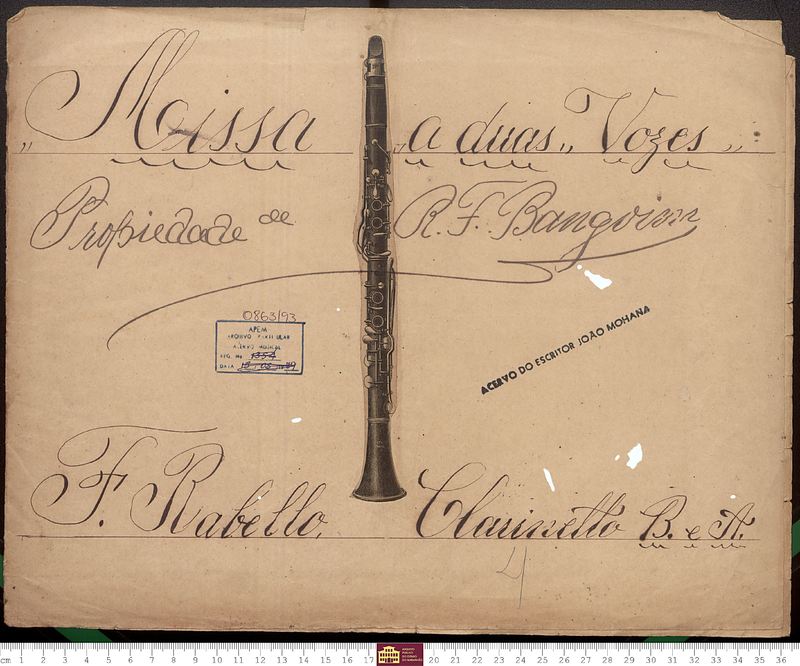 „ Missa „a duas„ Vozes „
Propiedade de R. F. Bangoim
0863/93
APEM
ARQUIVO PARTICULAR
ACERVO MUSICAL
REG. Nº 1354
DATA
ACERVO DO ESCRITOR JOÃO MOHANA
F. Rabello. Clarinetto B. e A.
4
cm 1 2 3 4 5 6 7 8 9 10 11 12 13 14 15 16 17 20 21 22 23 24 25 26 27 28 29 30 31 32 33 34 35 36